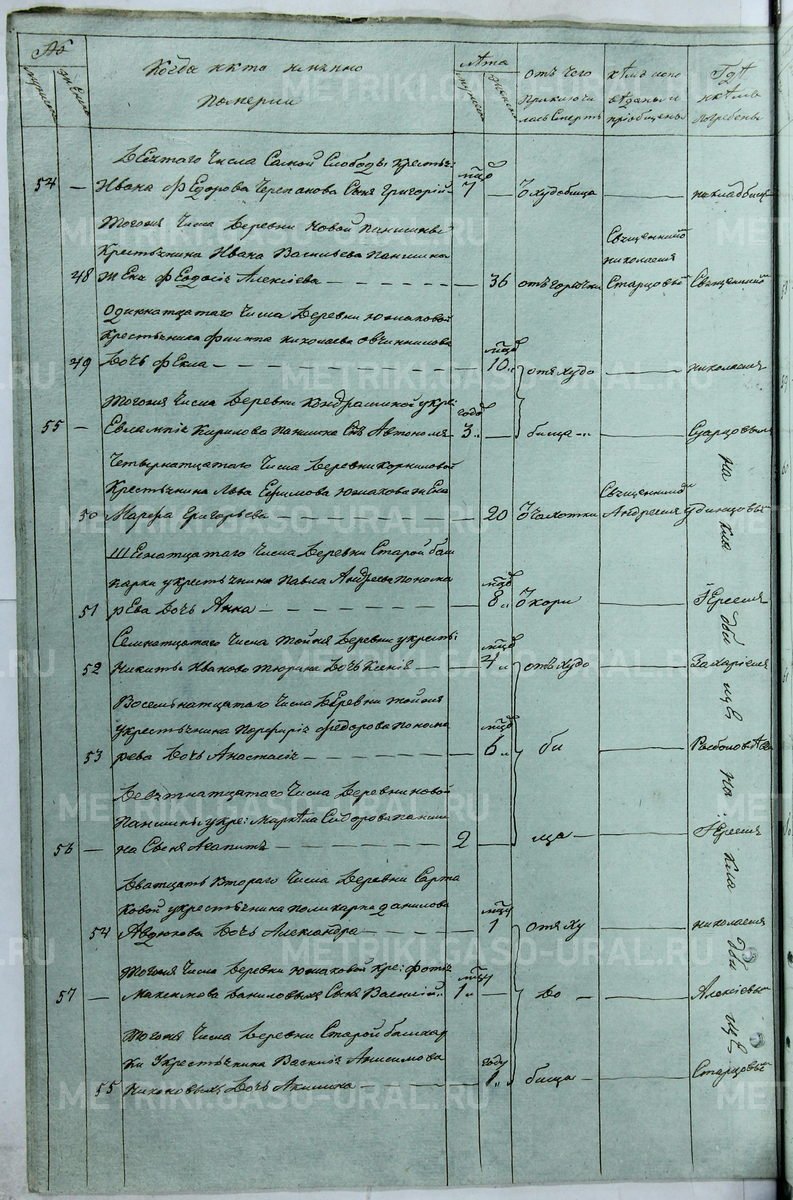 Когда и кто имянно
померли
лѣта
отъ чего
приключи
лась смерть
кѣмъ испо
вѣданы и
пріобщены
Гдѣ
и кѣмъ
погребены
Десятаго числа Самой Слободы крестья:
54 — Ивана Федорова Черепанова сынъ Григорій — 7 — Ѿ худобища — на кладбищѣ
Тогожъ числа деревни Новой Паншины
крестьянина Ивана Васильева Паншина
48 жена Федосія Алексіева — 36 отъ горячки
Священникъ
Николаемъ
Старцовымъ
Священникъ
Одиннатцатаго числа деревни Южаковой
крестьянина Филипа Николаева Овчинникова
49 дочь Фекла — 10 отъ худо — Николаемъ
Тогожъ числа деревни Кондрашиной у кре:
55 — Евлампія Кирилова Паншина сынъ Автономъ 3 — бища — Старцовымъ
Четырнатцатаго числа деревни Корниловой
крестьянина Льва Ефимова Южакова жена
50 Марфа Григорьева — 20 Ѿ чахотки
Священникомъ
Андреемъ Удинцовымъ
Шеснатцатаго числа деревни Старой баш
карки у крестьянина Павла Андреева Понома
51 рева дочь Анна — 8 Ѿ кори — Іереемъ
Семнатцатаго числа той же деревни у крестья:
52 Никиты Иванова Тюрина дочь Ксенія — 4 отъ худо — Захаріемъ
Восемьнатцатаго числа деревни той же
у крестьянина Порфирія Федорова Понома
53 рева дочь Анастасія — 6 би
Девятнатцатаго числа деревни Новой
Паншины у кре: Маркела Сидорова Панши
56 — на сынъ Агапитъ — 2 — ща — Іереемъ
Дватцать втораго числа деревни Сарта
ковой у крестьянина Поликарпа Данилова
54 Авдюкова дочь Александра — 1 отъ ху — Николаемъ
Тогожъ числа деревни Южаковой кре: Фотія
57 — Максимова Даниловыхъ сынъ Василій 1 — до — Алексіевымъ
Тогожъ числа деревни Старой башкар
ки у крестьянина Василія Анисимова
55 Никоновыхъ дочь Акилина — 1 бища — Старцовымъ
на кладбищѣ
на кладбищѣ
METRIKI.GASO-URAL.RU